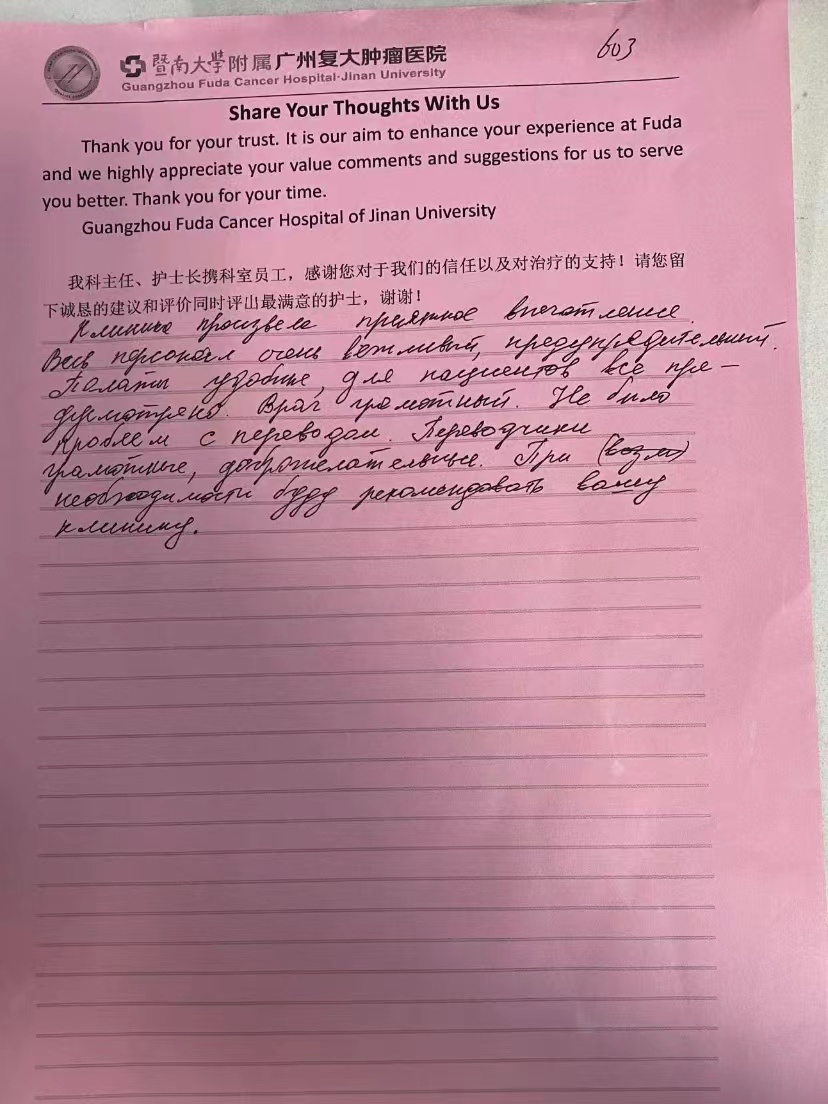 603
暨南大學附属广州复大肿瘤医院
Guangzhou Fuda Cancer Hospital·Jinan University
Share Your Thoughts With Us
Thank you for your trust. It is our aim to enhance your experience at Fuda
and we highly appreciate your value comments and suggestions for us to serve
you better. Thank you for your time.
Guangzhou Fuda Cancer Hospital of Jinan University
我科主任、护士长携科室员工，感谢您对于我们的信任以及对治疗的支持！请您留
下诚恳的建议和评价同时评出最满意的护士，谢谢！
Клиника произвела приятное впечатление.
Весь персонал очень вежливый, предупредительный.
Палаты удобные, для пациентов все пре-
дусмотрено. Врач грамотный. Не было
проблем с переводом. Переводчики
грамотные, доброжелательные. При (возмо)
необходимости буду рекомендовать вашу
клинику.